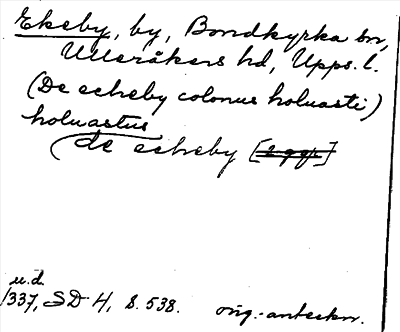 Ekeby, by, Bondkyrka sn,
Ulleråkers hd, Upps. l.
(De ekeby colonus holuasti)
holuastus
de ekeby [2 ggr]
u.d.
1337, SD 4, s. 538. orig.-anteckn.